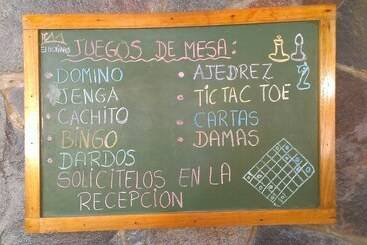 JUEGOS DE MESA:
• DOMINO
• JENGA
• CACHITO
• BINGO
• DARDOS
• AJEDREZ
• TIC TAC TOE
• CARTAS
• DAMAS
SOLICITELOS EN LA
RECEPCION